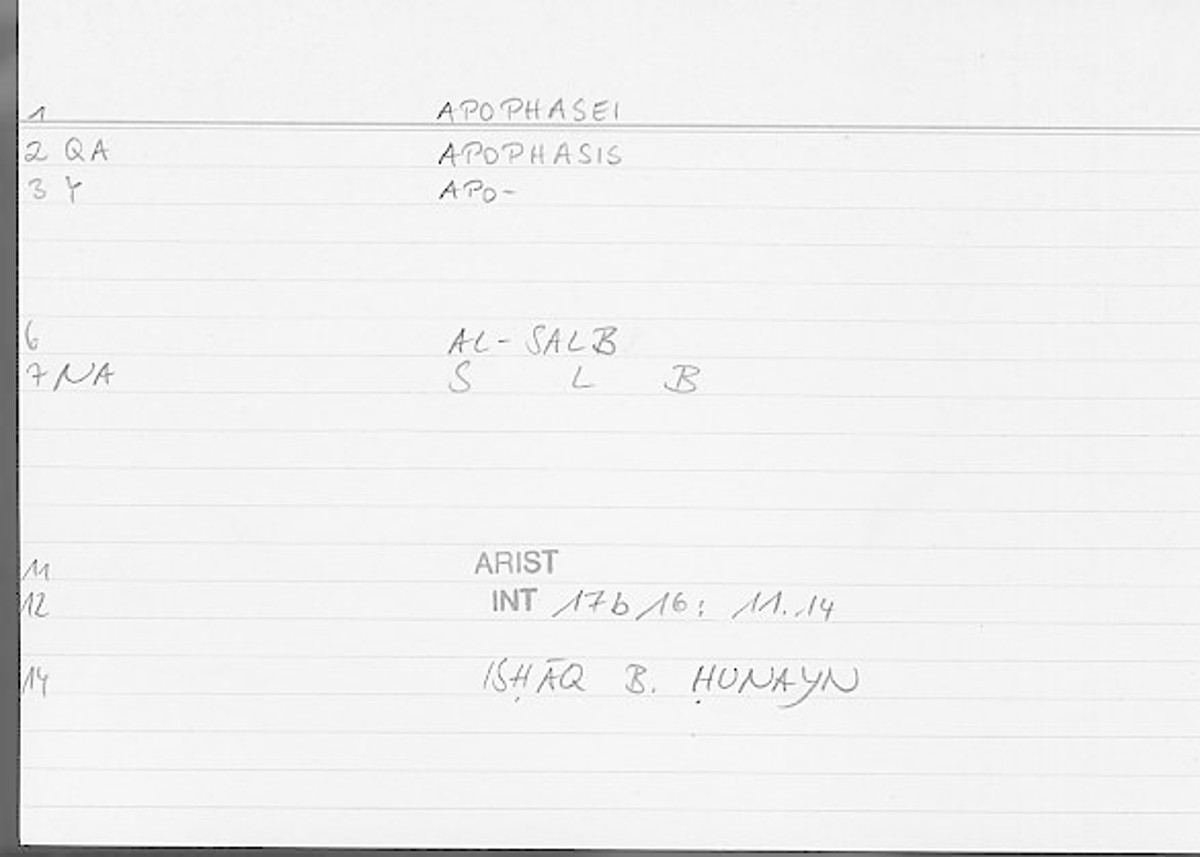 1 APOPHASEI
2 QA APOPHASIS
3 Y APO-
6 AL-SALB
7 NA S L B
11 ARIST
12 INT 17b16: 11.14
14 ISḤĀQ B. ḤUNAYN